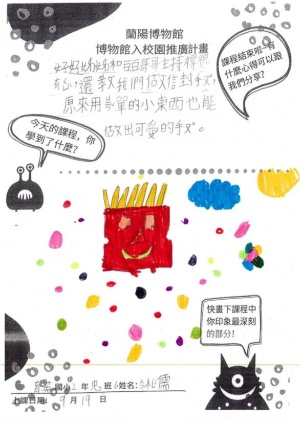 蘭陽博物館
博物館入校園推廣計畫
課程結束啦！有
什麼心得可以跟
我們分享？
好好姊姊和哥哥主持得很
還教我們做信封手奴，
原來用簡單的小東西也能
做出可愛的手奴。
今天的課程，你
學到了什麼？
快畫下課程中
你印象最深刻
的部分！
國小2年忠班 姓名：
上課日期：9月19日